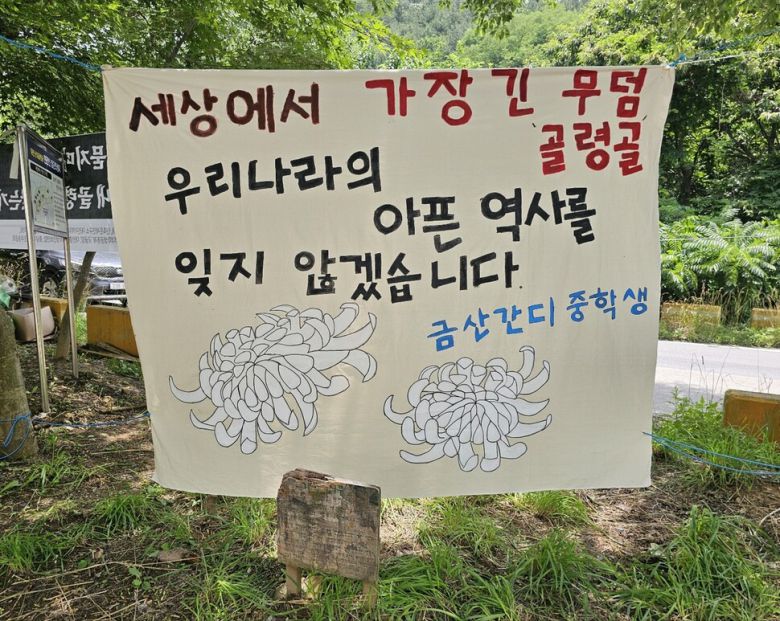 세상에서 가장 긴 무덤
골령골
우리나라의
아픈 역사를
잊지 않겠습니다.
금산간디중학생